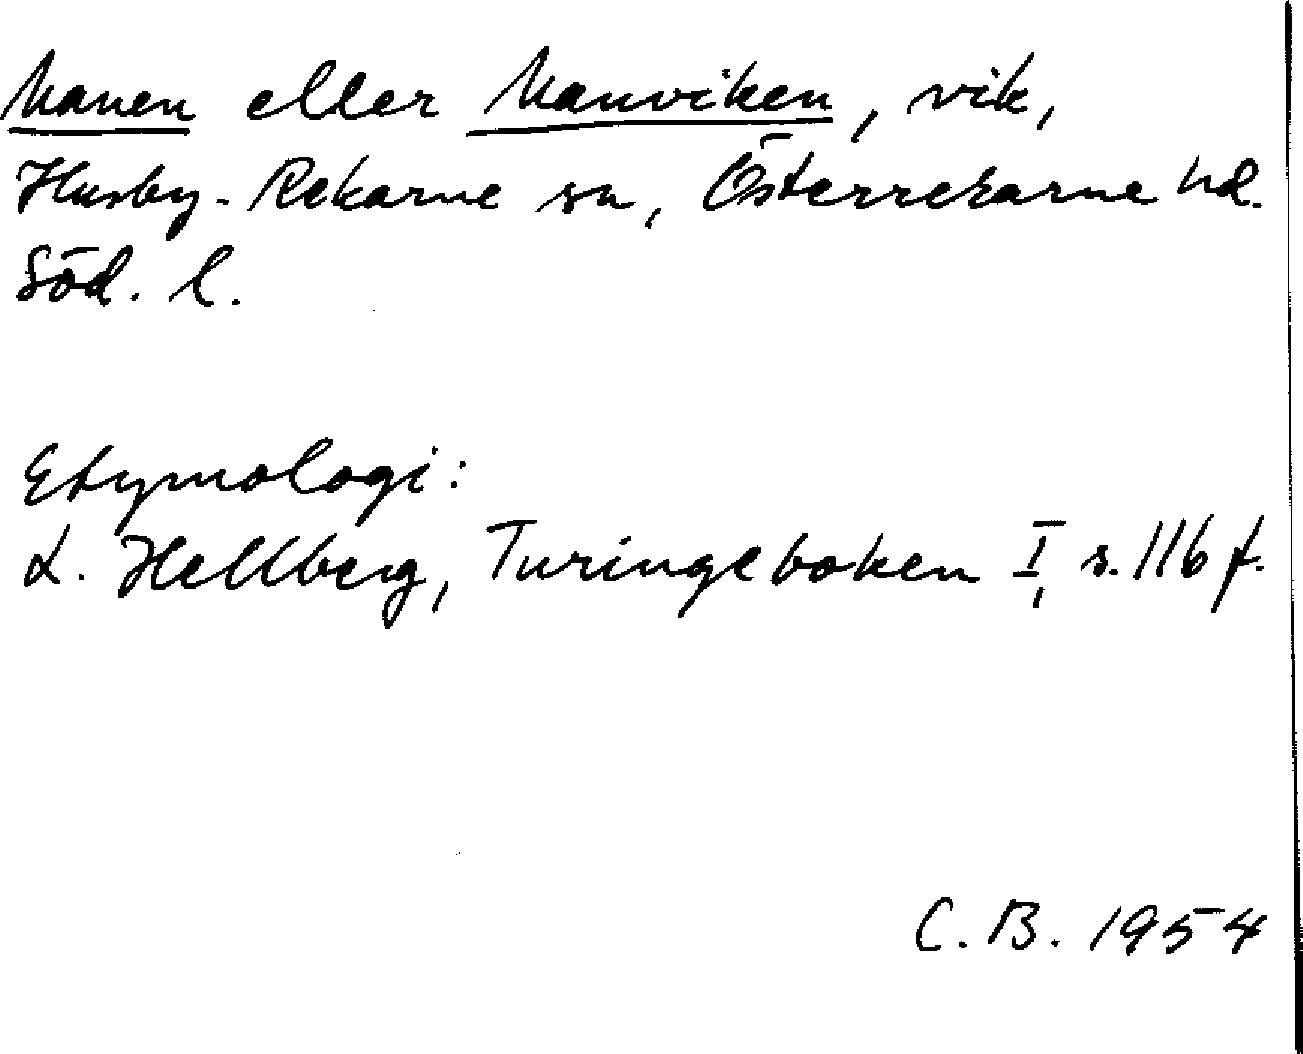 Manen eller Manviken, vik,
Husby-Rekarne sn, Österrekarne hd.
Söd. l.
Etymologi:
L. Hellberg, Turingeboken I, s. 116 f.
C. B. 1954